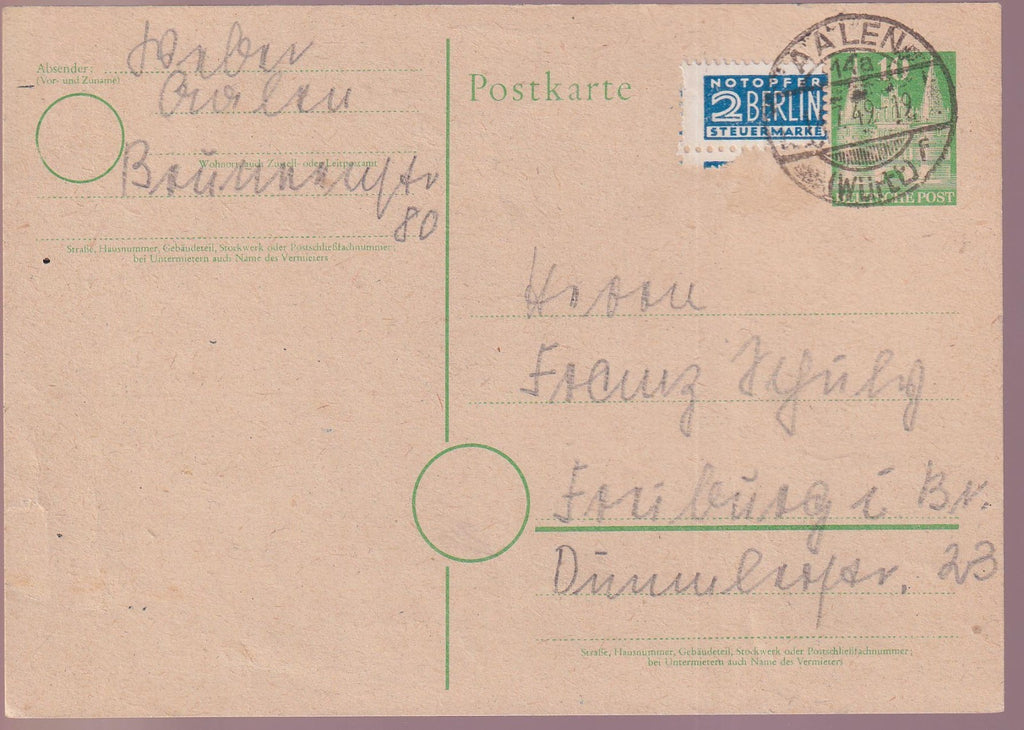 Absender:
(Vor- und Zuname)
Weber
Aalen
Wohnort, auch Zustell- oder Leitpostamt
80
Straße, Hausnummer, Gebäudeteil, Stockwerk oder Postschließfachnummer;
bei Untermietern auch Name des Vermieters
Postkarte
NOTOPFER
2 BERLIN
STEUERMARKE
AALEN
(Württ)
10
DEUTSCHE POST
Herrn
Franz Schulz
Freiburg i Br.
Dümmlerstr. 23
Straße, Hausnummer, Gebäudeteil, Stockwerk oder Postschließfachnummer;
bei Untermietern auch Name des Vermieters